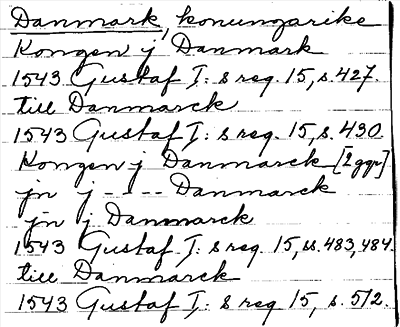 Danmark, konungarike
Kongen j Danmark
1543 Gustaf I: s reg. 15, s. 427.
till Danmarck
1543 Gustaf I: s reg. 15, s. 430.
Kongen j Danmarck [2 ggr]
jn j - - - - Danmarck
jn j Danmarck
1543 Gustaf I: s reg. 15, ss. 483, 484.
till Danmarck
1543 Gustaf I: s reg. 15, s. 512.